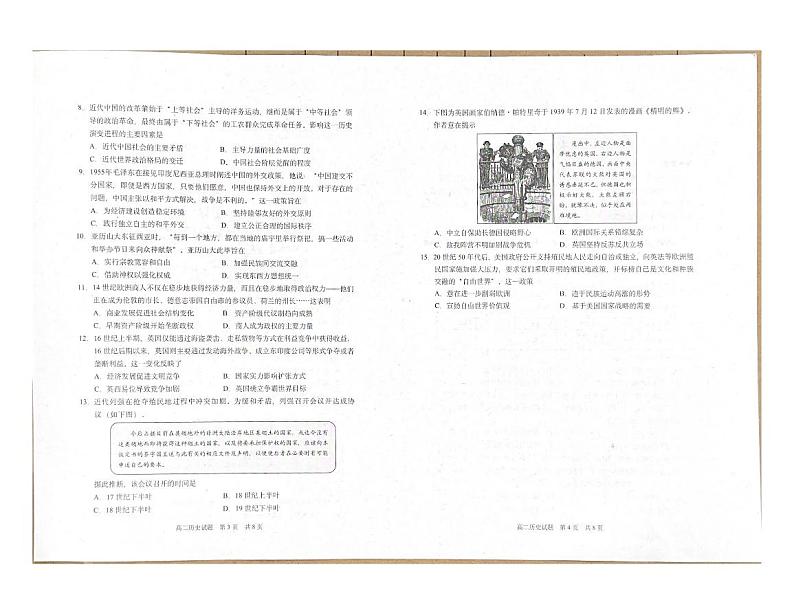 8. 近代中国的改革肇始于“上等社会”主导的洋务运动，继而是属于“中等社会”领
导的政治革命，最终由属于“下等社会”的工农群众完成革命任务。影响这一历史
演变进程的主要因素是
A. 近代中国社会的主要矛盾 B. 主导力量的社会基础广度
C. 近代世界政治格局的变迁 D. 中国社会阶层觉醒的程度
9. 1955年毛泽东在接见印度尼西亚总理时阐述中国的外交政策，他说：“中国建文不
分国家，即便是西方国家，只要他们愿意，中国也保持外交上的开放，对于存在的
问题，中国主张以和平方式解决，战争是不利的。”这一政策旨在
A. 为经济建设创造稳定环境 B. 坚持睦邻友好的外交原则
C. 践行独立自主的和平外交 D. 建立公正合理的国际秩序
10. 亚历山大东征西亚时，“每到一个地方，都在当地的庙宇里举行祭祀，搞一些活动
和举办节日来向众神献祭”。亚历山大的这些做法
A. 实行宗教宽容和自由 B. 加强民族间交流交融
C. 借助神权以强化统治 D. 实现东西方思想统一
11. 14世纪欧洲商人不仅在稳步获得经济力量，而且在稳步地取得政治权力——他们
正在成为伦敦的市长、德意志帝国自由市的参议员、荷兰的州长……这表明
A. 商业发展促进社会结构变化 B. 资产阶级代议制趋向成熟
C. 早期资产阶级开始垄断政权 D. 商人成为政权的主要力量
12. 16世纪上半期，英国仅能通过海盗袭击、走私货物等方式在利益竞争中获得收益。
16世纪后期以来，英国则主要通过发动海外战争、成立东印度公司等形式争夺或者
垄断利益。这一变化反映了
A. 经济发展促进文明竞争 B. 国家实力影响扩张方式
C. 英西易位导致竞争加剧 D. 英国确立争霸世界目标
13. 近代列强在抢夺殖民地过程中冲突加剧。为缓和矛盾，列强召开会议并达成协
议（如下图）。
今后占据目前在其领地外的非洲大陆沿岸地区某领土的国家，或迄今没有
这类领地而即将获得这种领土的国家，以及将要承担保护权的国家，应该向本
议定书的签字国呈送与此有关的相应文件及声明，以便使后者在必要时有可能
申述自己的要求。
据此推断，该会议召开的时间是
A. 17世纪下半叶 B. 18世纪上半叶
C. 18世纪下半叶 D. 19世纪下半叶
高二历史试题 第3页 共8页
14. 下图为英国画家伯纳德·帕特里奇于1939年7月12日发表的漫画《精明的熊》。
作者意在揭示
漫画中，左边人物是面
带忧虑的英国，右边人物是
气焰嚣张的德国，中间由代
表苏联的大熊对英国的
诱惑承诺不已，但德国也积
极拉拢大熊，大熊左顾右
盼，犹豫不决，似乎处在两
难境地。
A. 中立自保助长德国侵略野心 B. 欧洲国际关系错综复杂
C. 敌我阵营不明加剧战争危机 D. 英国坚持反苏反共立场
15. 20世纪50年代后，美国政府公开支持殖民地人民走向自治或独立，向英法等欧洲殖
民国家施加强大压力，要求它们采取开明的殖民政策，并标榜自己是文化和种族
交融的“自由世界”，这一政策
A. 意在进一步削弱欧洲 B. 迫于民族运动高涨的形势
C. 宣扬自由世界价值观 D. 基于美国国家战略的需要
高二历史试题 第4页 共8页